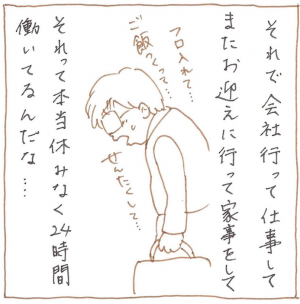 それで会社行って仕事して
またお迎えに行って家事をして
フロ入れて…
ご飯つくって…
せんたくして…
それって本当休みなく24時間
働いてるんだな….